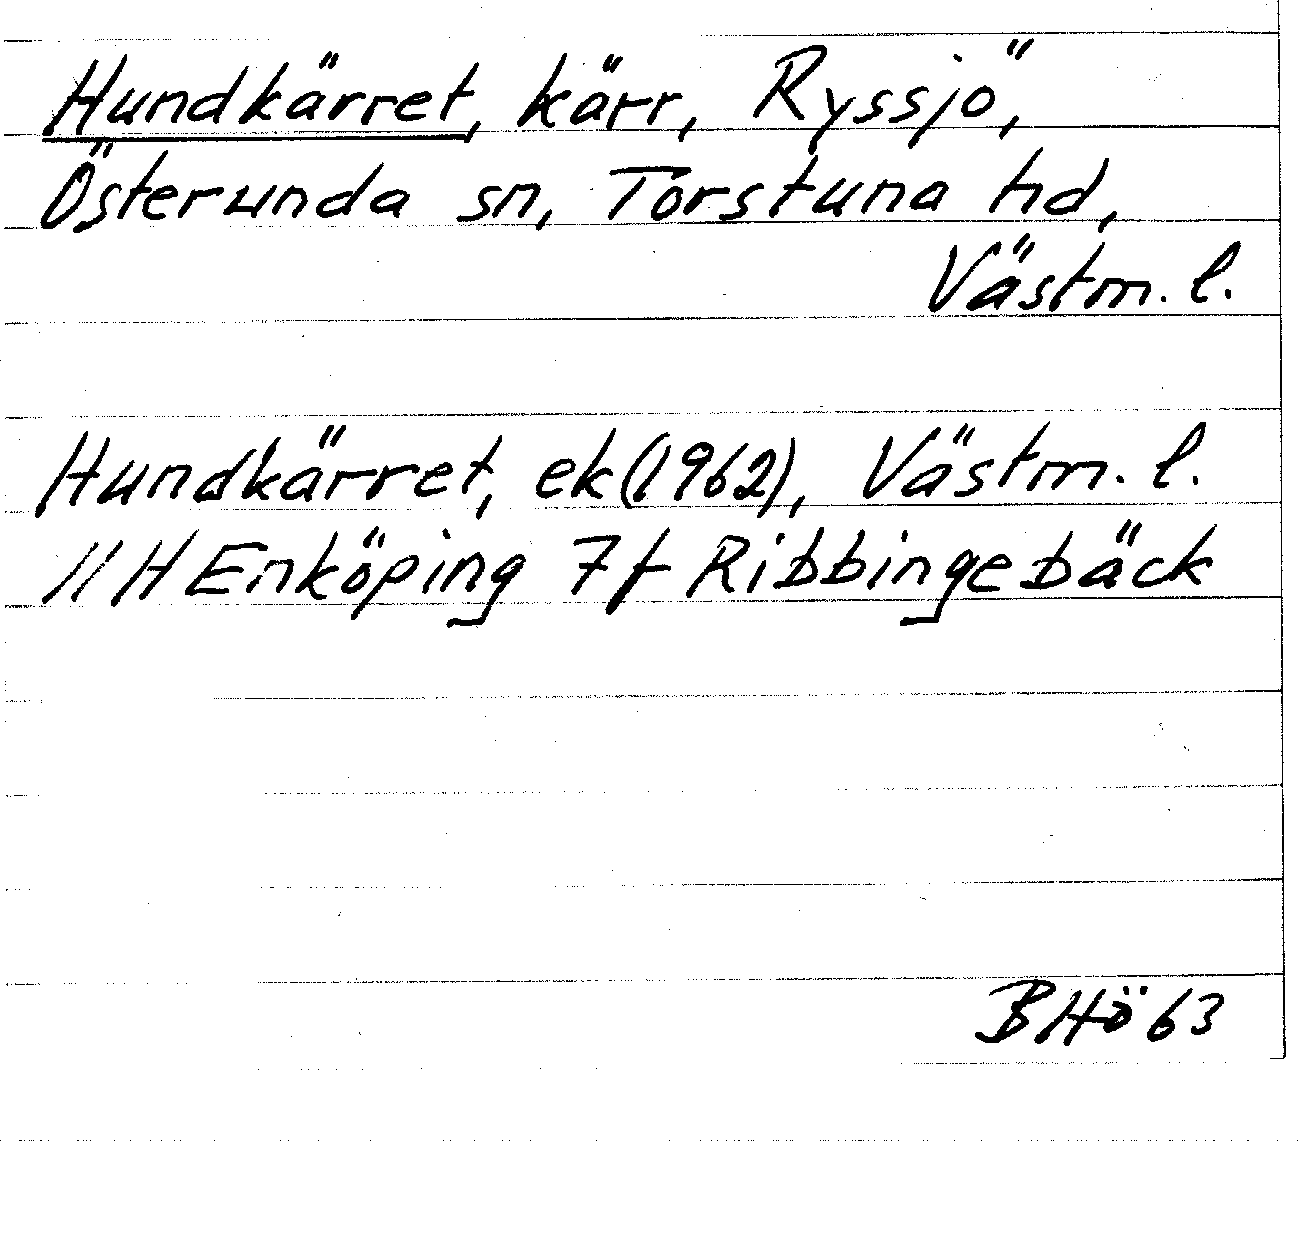 Hundkärret, kärr, Ryssjö,
Österunda sn, Torstuna hd,
Västm. l.
Hundkärret, ek (1962), Västm. l.
11H Enköping 7f Ribbingebäck
BHö 63